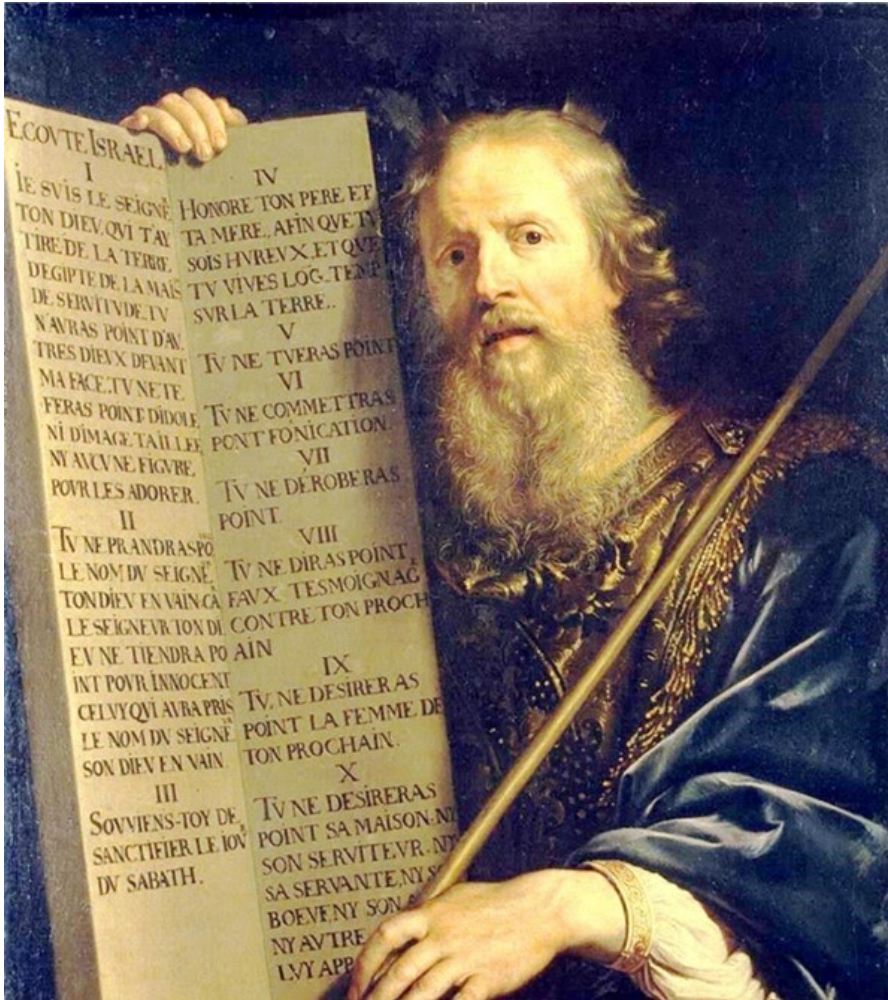 ECOVTE ISRAEL
I
IE SVIS LE SEIGNE
TON DIEV, QVI T'AY
TIRE DE LA TERRE
D'EGIPTE DE LA MAIS
DE SERVITVDE, TV
N'AVRAS POINT D'AV
TRES DIEVX DEVANT
MA FACE. TV NE TE
FERAS POINT DIDOLE
NI DIMAGE TAILLEE
NY AVCVNE FIGVRE
POVR LES ADORER.
II
TV NE PRANDRAS PO
LE NOM DV SEIGNE
TON DIEV EN VAIN. CA
LE SEIGNEVR TON DI
EV NE TIENDRA PO
INT POVR INNOCENT
CELVY QVI AVRA PRIS
LE NOM DV SEIGNE
SON DIEV EN VAIN
III
SOVVIENS-TOY DE
SANCTIFIER LE IOV
DV SABATH.
IV
HONORE TON PERE ET
TA MERE, AFIN QVE TV
SOIS HVREVX, ET QVE
TV VIVES LOG. TEMP
SVR LA TERRE.
V
TV NE TVERAS POINT
VI
TV NE COMMETTRAS
PONT FONICATION.
VII
TV NE DÉROBERAS
POINT.
VIII
TV NE DIRAS POINT
FAVX TESMOIGNAG
CONTRE TON PROCH
AIN
IX
TV. NE DESIRERAS
POINT LA FEMME DE
TON PROCHAIN.
X
TV NE DESIRERAS
POINT SA MAISON. NY
SON SERVITEVR. NY
SA SERVANTE, NY S
BOEVF. NY SON
NY AVTRE
LVY APP